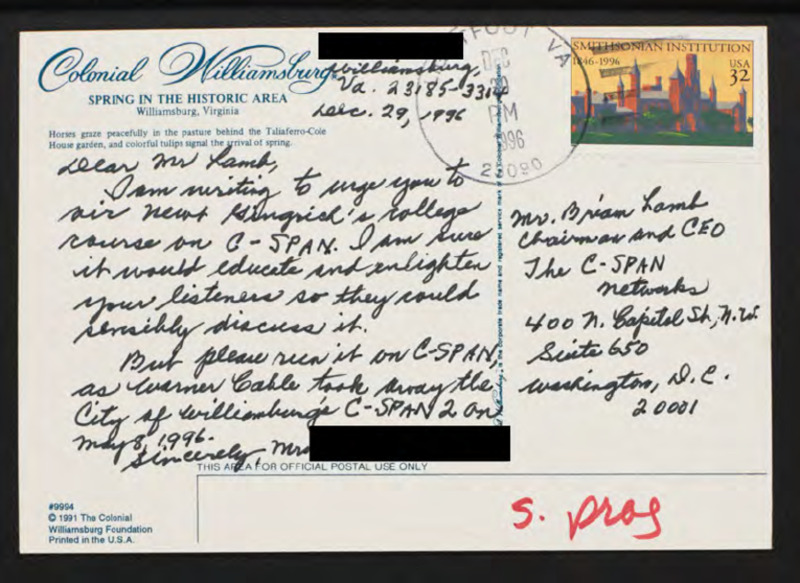 Colonial Williamsburg
SPRING IN THE HISTORIC AREA
Williamsburg, Virginia
Horses graze peacefully in the pasture behind the Taliaferro-Cole
House garden, and colorful tulips signal the arrival of spring.
Williamsburg,
Va. 23185-3314
Dec. 29, 1996
Dear Mr Lamb,
I am writing to urge you to
air Newt Gingrich's college
course on C-SPAN. I am sure
it would educate and enlighten
your listeners so they could
sensibly discuss it.
But please run it on C-SPAN,
as Warner Cable took away the
City of Williamburg's C-SPAN 2 on
May 8, 1996.
Sincerely, Mrs
THIS AREA FOR OFFICIAL POSTAL USE ONLY
#9994
© 1991 The Colonial
Williamsburg Foundation
Printed in the U.S.A.
VA
DEC
PM
1996
SMITHSONIAN INSTITUTION
1846-1996
USA
32
Mr. Brian Lamb
Chairman and CEO
The C-SPAN
Networks
400 N. Capitol St., N.W.
Suite 650
Washington, D.C.
20001
S. prog